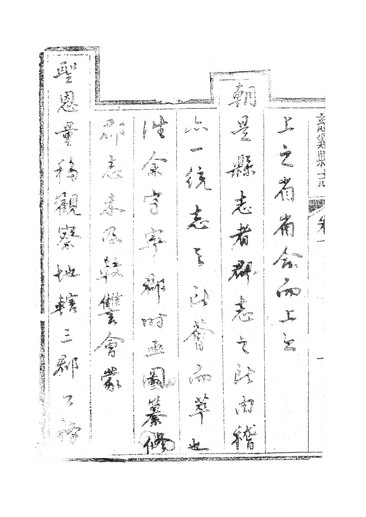 上之省省會而上之
朝是縣志者郡志之所由稽
亦一統志之所薈而萃也
惟余守寧郡時亟圖纂修
郡志未及較讐會蒙
聖恩量移觀察地轄三郡